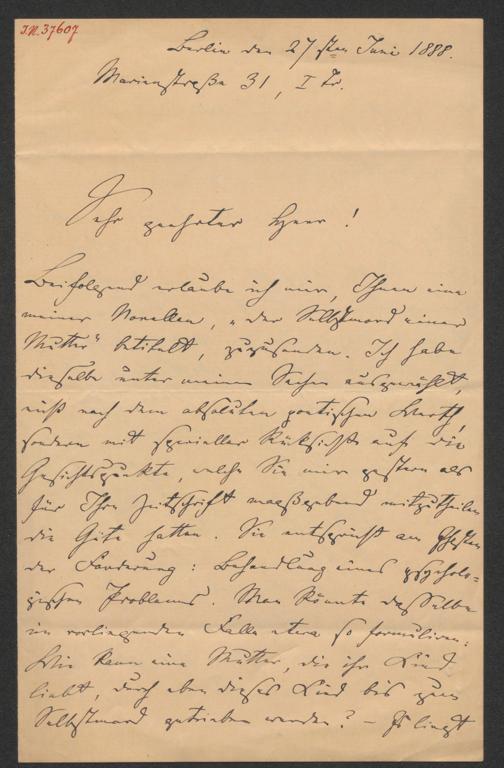 J.N. 37607
Berlin den 27sten Juni 1888.
Marienstraße 31, I Tr.
Sehr geehrter Herr!
Beifolgend erlaube ich mir, Ihnen eine
meiner Novellen, „der Selbstmord einer
Mutter“ betitelt, zuzusenden. Ich habe
dieselbe unter meinen Sachen ausgewählt,
nicht nach dem absoluten poetischen Werth,
sondern mit specieller Rücksicht auf die
Gesichtspunkte, welche Sie mir gestern als
für Ihre Zeitschrift maaßgebend mitzutheilen
die Güte hatten. Sie entspricht am ehesten
der Forderung: Behandlung eines psycholo-
gischen Problems. Man könnte dasselbe
im vorliegenden Falle etwa so formuliren:
Wie kann eine Mutter, die ihr Kind
liebt, durch eben dieses Kind bis zum
Selbstmord getrieben werden? – Es liegt